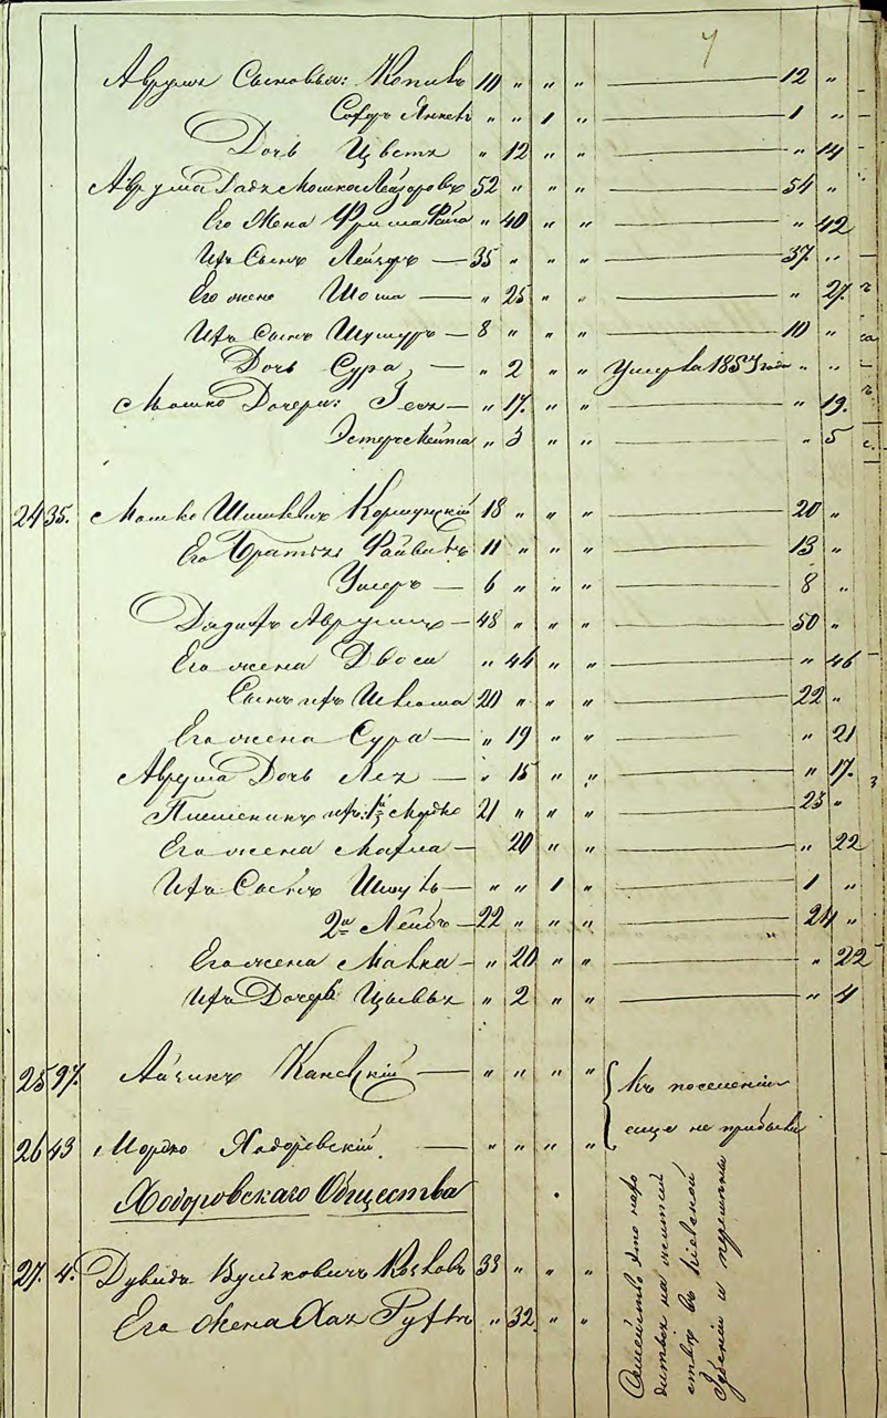 7
Аврума Сыновья: Копель 10 „ „ „ — 12 „
Янкель „ „ 1 „ — 1 „
Дочь Цвета „ 12 „ „ — „ 14
Аврума Дядя Мошко Лейзоровъ 52 „ „ „ — 54 „
Его Жена Фрима Файга „ 40 „ „ — „ 42
Ихъ Сынъ Лейзоръ — 35 „ „ „ — 37. „
Его жена Шоша — „ 25 „ „ — „ 27.
Ихъ Сынъ — 8 „ „ „ — 10 „
Дочь Сура, — „ 2 „ „ Умерла 1857 года „ „
Мошко Дочери: — „ 17. „ „ — „ 19.
Эстеръ Лейта „ 3 „ „ — „ 5
24 35. Мошко 18 „ „ „ — 20 „
Его Братья Файвель 11 „ „ „ — 13 „
Ушеръ — 6 „ „ „ — 8 „
Дядя ихъ Аврумъ — 48 „ „ „ — 50 „
Его жена Двося „ 44 „ „ — „ 46
Сынъ ихъ Шлёма 20 „ „ „ — 22 „
Его жена Сура — „ 19 „ „ — „ 21
Аврума Дочь Лея — „ 15 „ „ — „ 17.
Племянникъ ихъ: 1й Мордко 21 „ „ „ — 23 „
Его жена — 20 „ „ — „ 22
Ихъ Сынъ Шмуль — „ „ 1 „ — 1 „
2й Лейбъ — 22 „ „ „ — 24 „
Его жена Малка — „ 20 „ „ — „ 22
Ихъ Дочерь Цывья „ 2 „ „ — „ 4
25 97. Айзикъ Каневскій — „ „ „ „ Къ поселенію
еще не прибыли
26 43 Мордко Ходоровскій. — „ „ „ „
Ходоровскаго Общества
27. 4. Дувидъ Вульковичъ Козловъ 33 „ „ „
Его Жена Хая Рухля „ 32. „ „
Семейство это нахо
дится на жительствѣ
въ Кіевской
Губерніи и